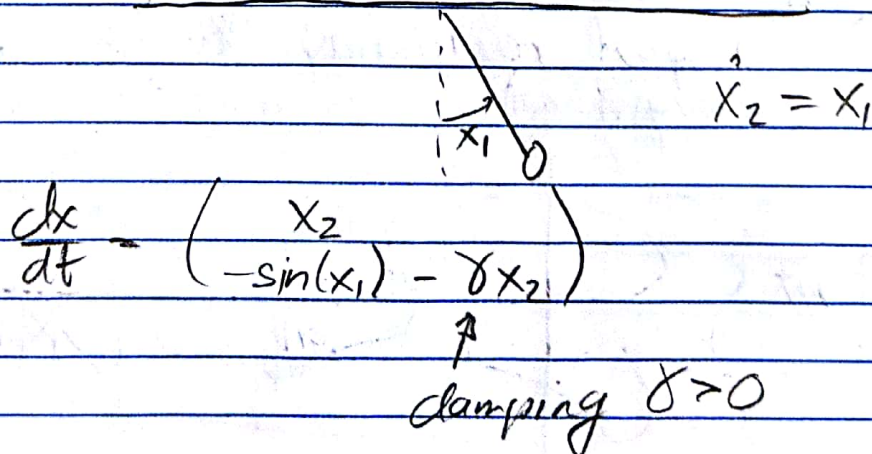 ẋ₂ = x₁
x₁
dx/dt = ( x₂
-sin(x₁) - γx₂ )
↑
damping γ>0